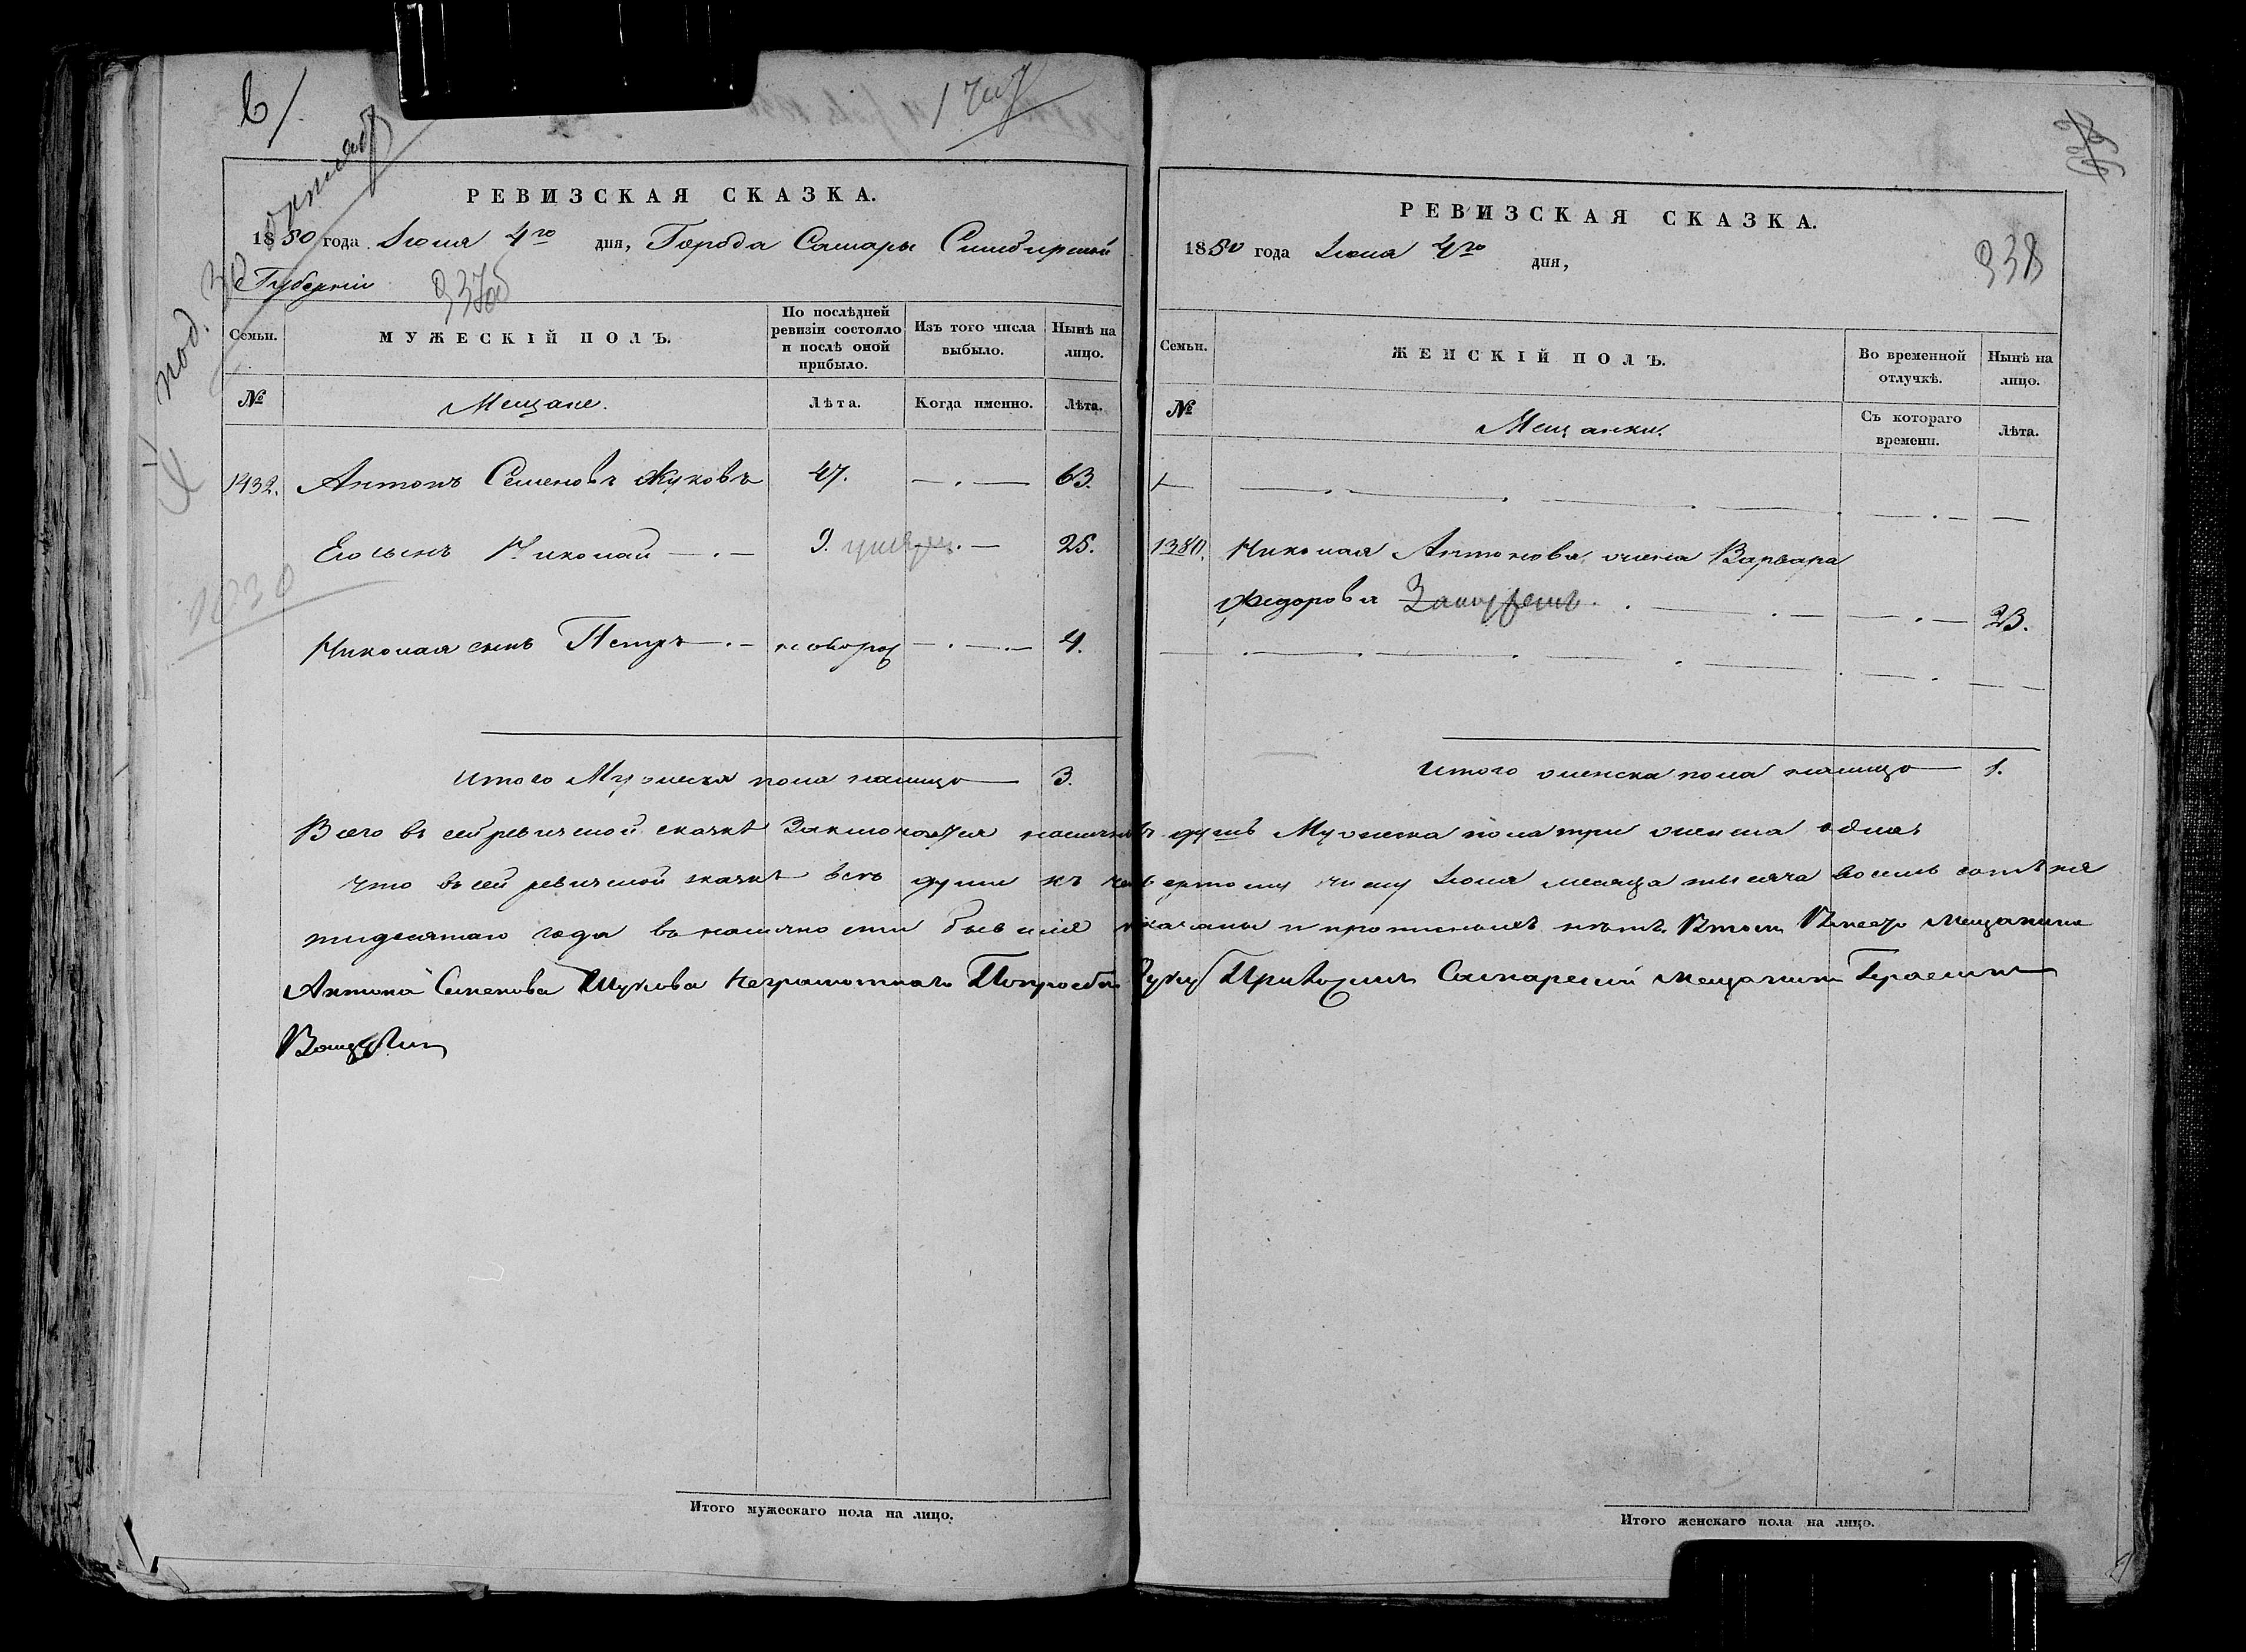 РЕВИЗСКАЯ СКАЗКА.
1850 года Iюня 4го дня, Города Самары Симбирской
Губернiи
Семьи.
МУЖЕСКIЙ ПОЛЪ.
По послѣдней ревизiи состояло и послѣ оной прибыло.
Изъ того числа выбыло.
Нынѣ на лицо.
№
Мещане.
Лѣта.
Когда именно.
Лѣта.
1432. Антонъ Семеновъ Жуковъ 47. 63.
Его сынъ Николай 9. 25.
Николая сынъ Петръ новорож 4.
1030
Итого Мужеска пола налицо 3.
РЕВИЗСКАЯ СКАЗКА.
1850 года Iюня 4го дня,
338
Семьи.
ЖЕНСКIЙ ПОЛЪ.
Во временной отлучкѣ.
Нынѣ на лицо.
№
Мещанки.
Съ котораго времени.
Лѣта.
1380. Николая Антонова жена Варвара
Федорова 23.
Итого женска пола налицо 1.
Всего въ сей ревиской сказкѣ Заключается наличныхъ душъ Мужеска пола три женска одна
Что въ сей ревиской сказкѣ всѣ души къ четвертому числу Iюня месяца тысяча восемь сотъ пя
тидесятаго года въ наличности бывшiе показаны и прописныхъ нѣтъ. Къ той Вместо Мещанина
Антона Семенова Жукова Неграмотнаго Попрозбе Руку Приложилъ Самарскiй мещанинъ Герасимъ
Итого мужескаго пола на лицо.
Итого женскаго пола на лицо.